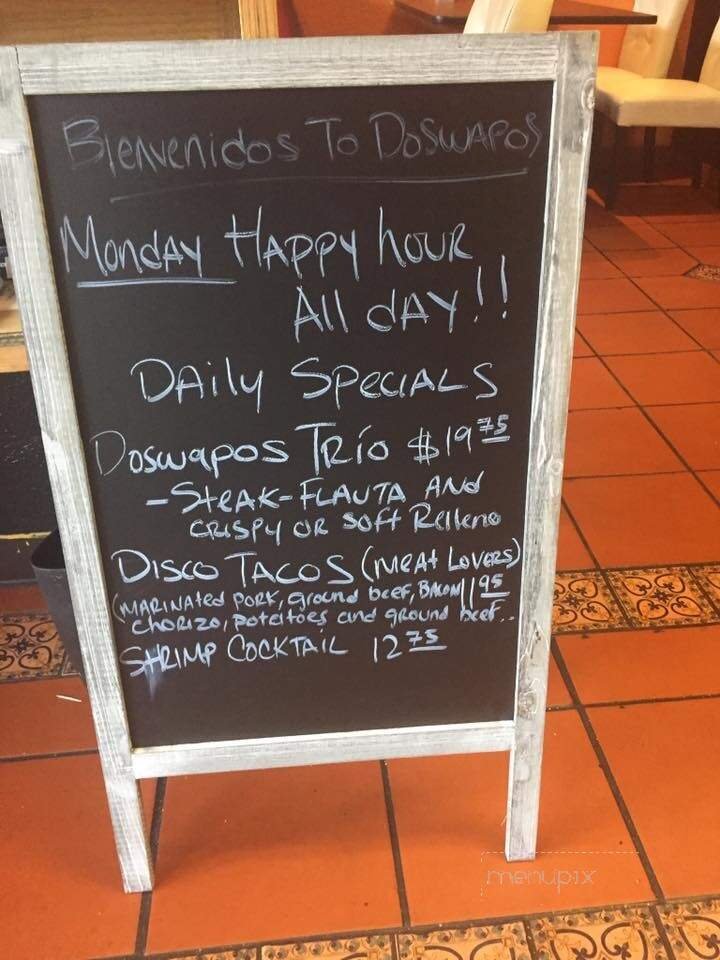 Bienvenidos To Doswapos
Monday Happy hour
All day!!
Daily Specials
Doswapos Trío $19 75
-Steak-Flauta And
crispy or soft Relleno
Disco Tacos (meat Lovers)
(Marinated pork, ground beef, Bacon 11 95
chorizo, potatoes and ground beef..
Shrimp Cocktail 12 75
menupix